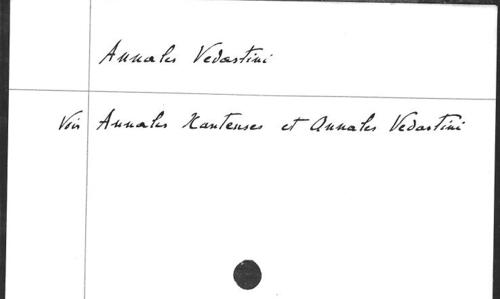 Annales Vedastini
Voir Annales Xantenses et Annales Vedastini